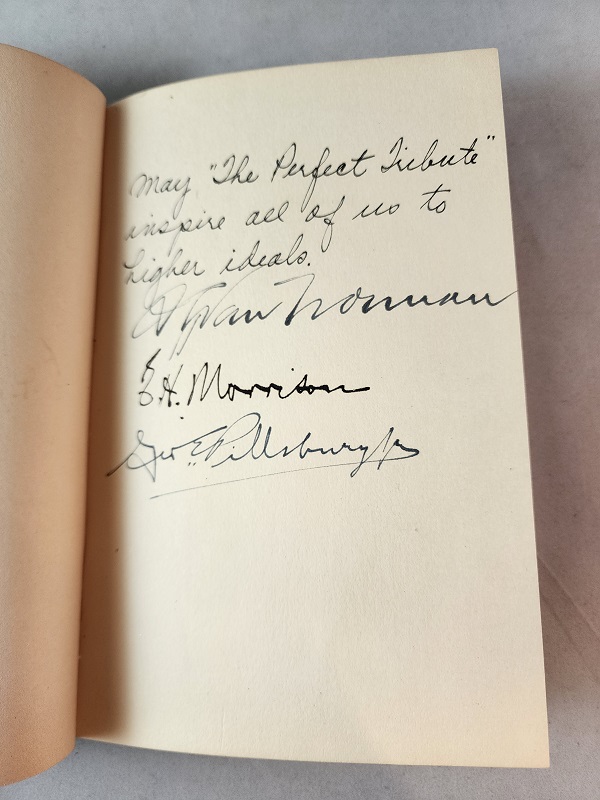 May "The Perfect Tribute"
inspire all of us to
higher ideals.
Van Norman
E.H. Morrison
Geo E. Pillsbury Jr